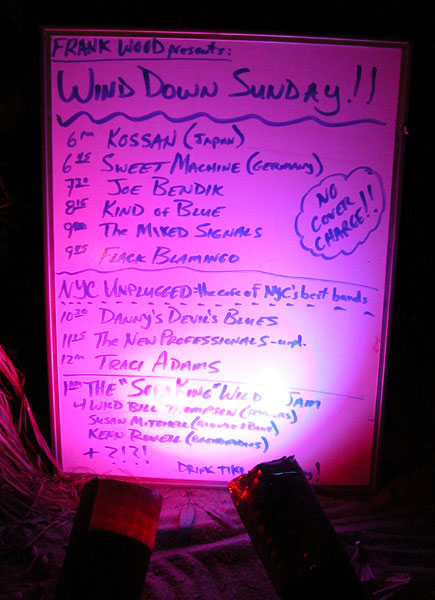 FRANK WOOD presents:
WIND DOWN SUNDAY!!
6PM KOSSAN (JAPAN)
6 15 SWEET MACHINE (GERMANY)
7 30 JOE BENDIK
8 15 KIND OF BLUE
9 00 The MIXED SIGNALS
9 45 FLACK BLAMINGO
NO
COVER
CHARGE!!
NYC UNPLUGGED-the cafe of NYC's best bands
10 30 DANNY'S DEVIL'S BLUES
11 15 The NEW PROFESSIONALS-unpl.
12AM TRACI ADAMS
1AM THE "SOFA KING" WILD JAM
4 WILD BILL THOMPSON
SUSAN MITCHELL
KENN ROWELL
+ ?!?!
DRINK TIKI